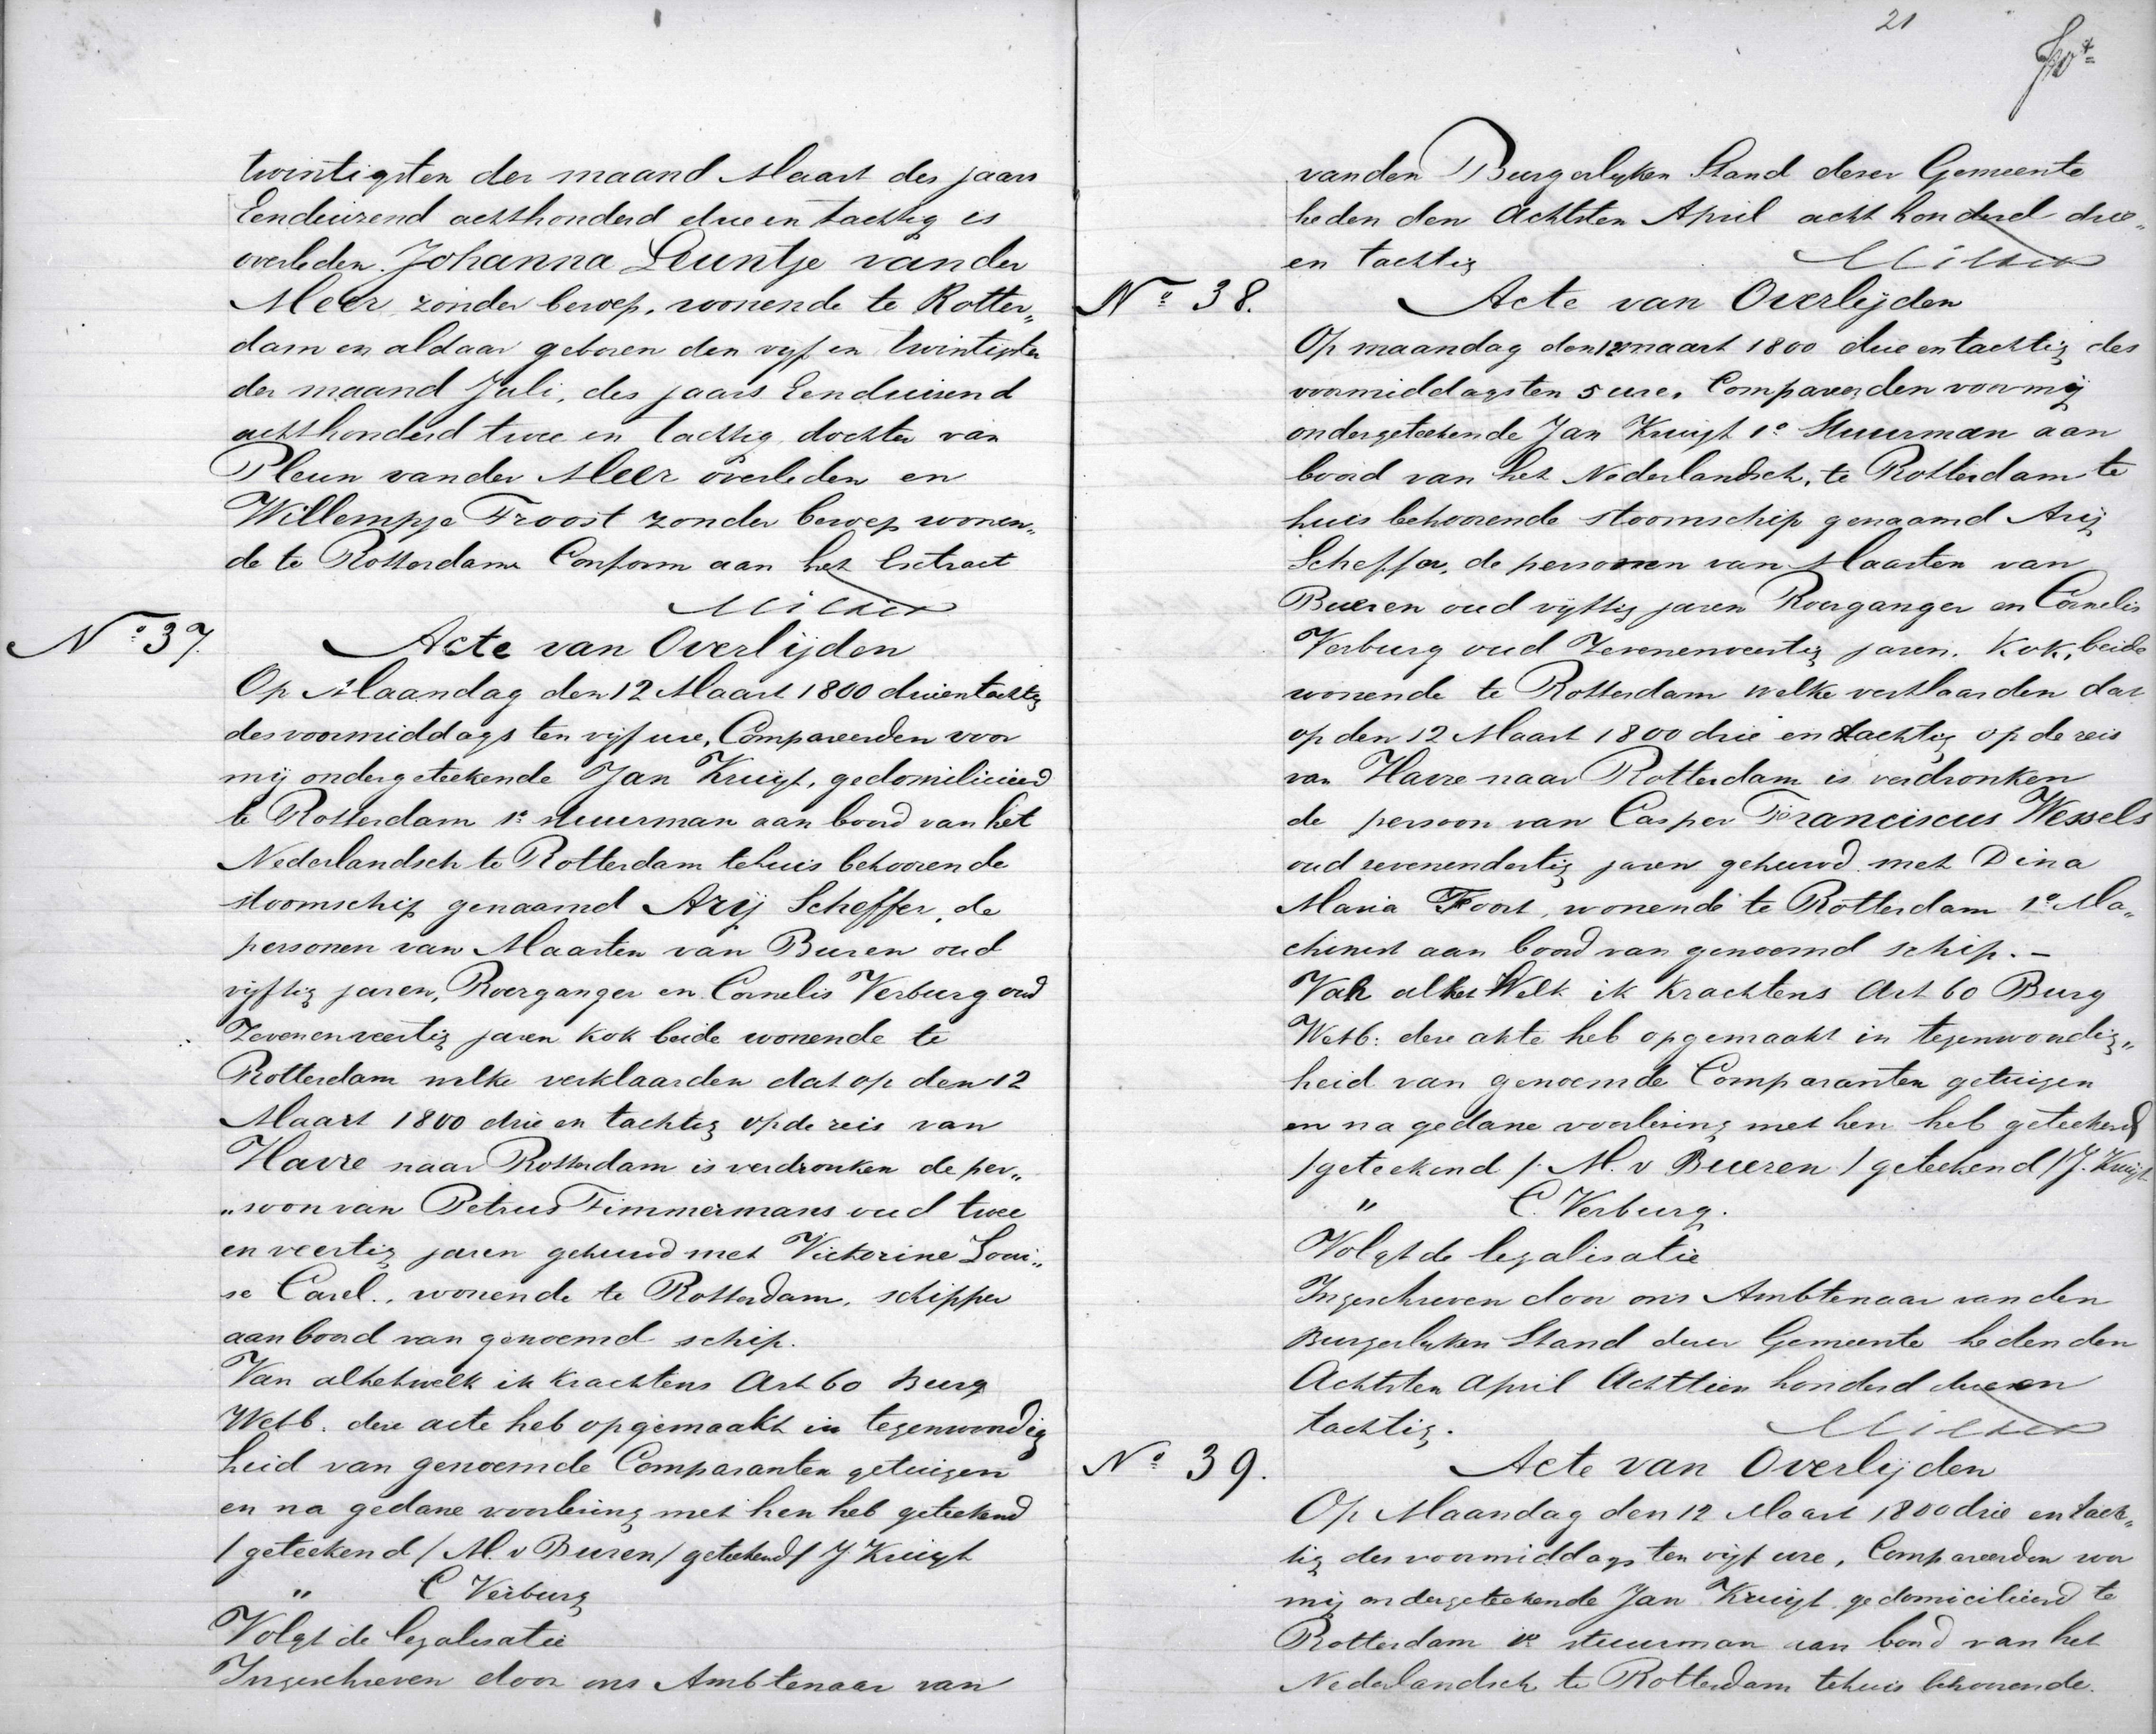 twintigsten der maand Maart des jaars
Eenduizend achthonderd drie en tachtig is
overleden. Johanna Leuntje van der
Meer, zonder beroep, wonende te Rotter„
dam en aldaar geboren den vyf en twintigsten
der maand Juli, des jaars Eenduizend
achthonderd twee en tachtig, dochter van
Pleun van der Meer overleden en
Willempje Troost zonder beroep wonen„
de te Rotterdam Conform aan het Extract
No 37.
Acte van Overlijden
Op Maandag den 12 Maart 1800 drieentachtig
des voormiddags ten vijf ure, Compareerden voor
mij ondergeteekende Jan Kruijt, gedomilieerd
te Rotterdam 1e stuurman aan boord van het
Nederlandsch te Rotterdam tehuis behoorende
stoomschip genaamd Arij Scheffer, de
personen van Maarten van Buren oud
vijftig jaren, Roerganger en Cornelis Verburg oud
Zevenenveertig jaren kok beide wonende te
Rotterdam welke verklaarden dat op den 12
Maart 1800 drie en tachtig op de reis van
Havre naar Rotterdam is verdronken de per„
„soon van Petrus Timmermans oud twee
en veertig jaren gehuwd met Victorine Loui„
se Carel., wonende te Rotterdam, schipper
aan boord van genoemd schip.
Van alhetwelk ik krachtens Art 60 Burg
Wetb. deze acte heb opgemaakt in tegenwoordig
heid van genoemde Comparanten getuigen
en na gedane voorlezing met hen heb geteekend
/ geteekend / M. v Buren / geteekend / J. Kruijt
„ C Verburg
Volgt de legalisatie
Ingeschreven door ons Ambtenaar van
21
van den Burgerlyken Stand dezer Gemeente
heden den Achtsten April acht honderd drie„
en tachtig
No 38.
Acte van Overlijden
Op maandag den 12 maart 1800 drie en tachtig des
voormiddags ten 5 ure. Compareerden voor mij
ondergeteekende Jan Kruijt 1e Stuurman aan
boord van het Nederlandsch, te Rotterdam te
huis behoorende stoomschip genaamd Arij
Scheffer, de personen van Maarten van
Bueren oud vijftig jaren Roerganger en Cornelis
Verburg oud Zevenenveertig jaren. Kok, beide
wonende te Rotterdam welke verklaarden dat
op den 12 Maart 1800 drie en tachtig op de reis
van Havre naar Rotterdam is verdronken
de persoon van Casper Franciscus Wessels
oud zevenendertig jaren gehuwd met Dina
Maria Foort, wonende te Rotterdam 1e Ma„
chinist aan boord van genoemd schip. –
Van alhet Welk ik krachtens Art 60 Burg
Wetb: deze akte heb opgemaakt in tegenwoordig„
heid van genoemde Comparanten getuigen
en na gedane voorlezing met hen heb geteekend
/ geteekend / M. v Bueren / geteekend / J. Kruijt
„ C. Verburg.
Volgt de legalisatie
Ingeschreven door ons Ambtenaar van den
Burgerlyken Stand dezer Gemeente heden den
Achtsten April Achttien honderd drie en
tachtig.
No 39.
Acte van Overlijden
Op Maandag den 12 Maart 1800 drie en tach„
tig des voormiddags ten vijf ure, Compareerden voor
mij ondergeteekende Jan Kruijt, gedomicilieerd te
Rotterdam 1e stuurman aan boord van het
Nederlandsch te Rotterdam tehuis behoorende.